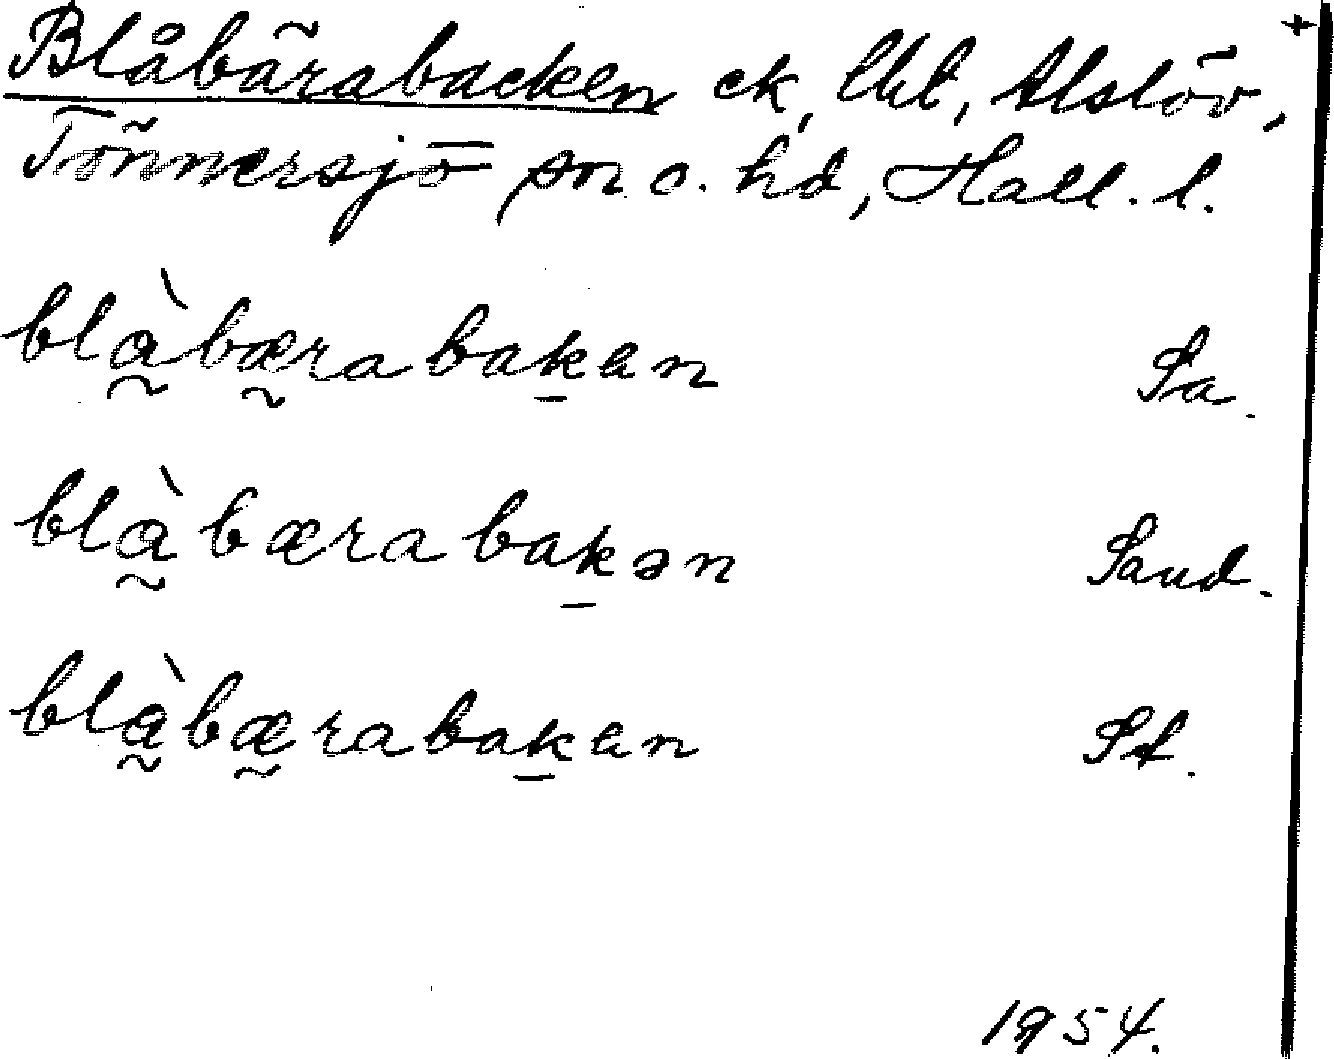 Blåbärabacken ck, Ukl, Alslöv, +
Tönnersjö sn o. hd, Hall. l.
blà̰bæ̰rabak̠an Sa.
blà̰bærabak̠ən Sand.
blà̰bæ̰rabak̠an St.
1954.